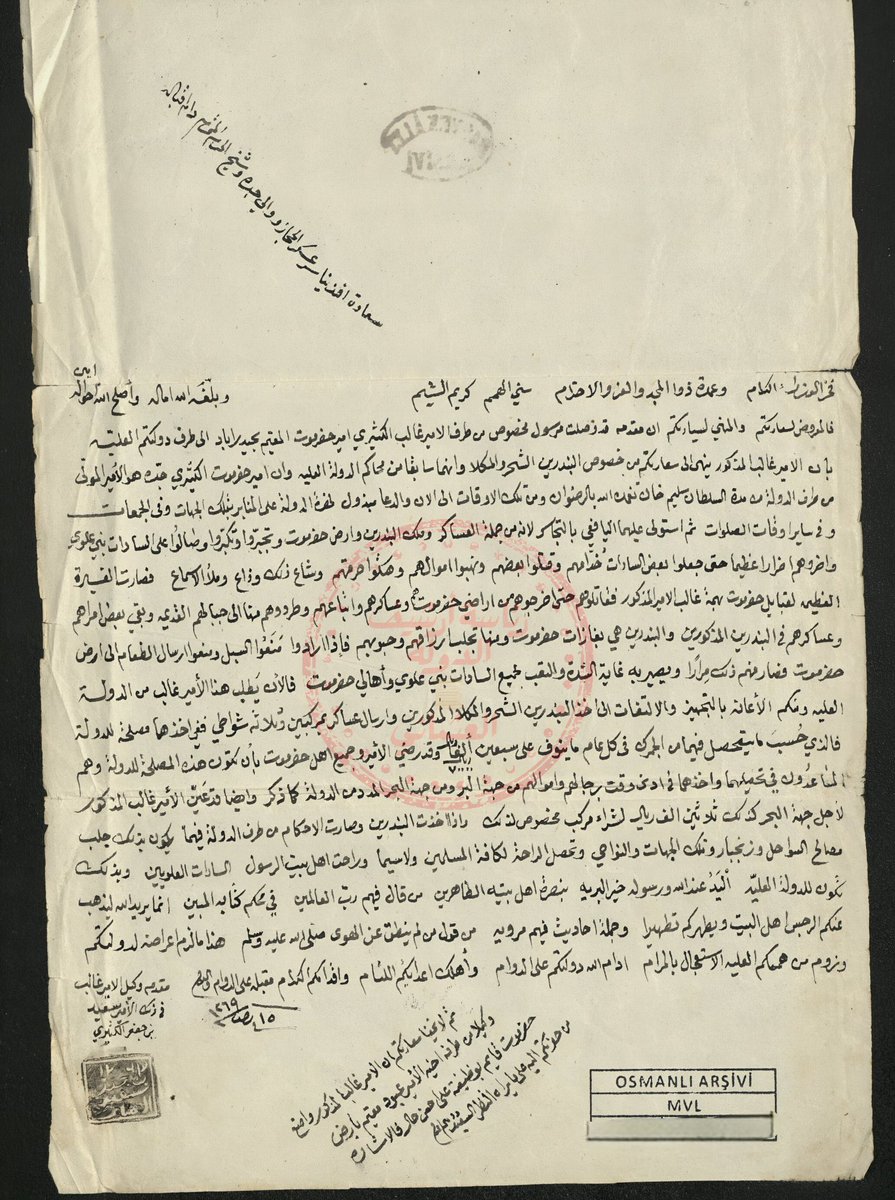 سعادة افندينا سر عسكر الحجاز ووالي جده وشيخ الحرم المحترم دام اقباله
امين
فخر العظماء الكرام وعمدة ذوا المجد والعز والاحترام سني الهمم كريم الشيم وبلغه الله اماله واصلح الله احواله
فالمعروض لسعادتكم والمنهي لسيادتكم ان مقدمه قد وصلت مرسول مخصوص من طرف الامير غالب الكثيري امير حضرموت المقيم بحيدراباد الى طرف دولتكم العليه
بان الامير غالب المذكور ينهي الى سعادتكم من خصوص البندرين الشحر والمكلا وانهما سابقا من محاكم الدولة العليه وان امير حضرموت الكثيري جده هو الأمير المولى
من طرف الدولة من مدة السلطان سليم خان تغمده الله بالرضوان ومن تلك الاوقات الى الان والدعا مبذول لنصرة الدولة على المنابر بتلك الجهات وفي الجمعات
وفي ساير اوقات الصلوات ثم استولى عليهما اليافعي بالتجاسر لانه من جملة العساكر وملك البندرين وارض حضرموت وتجبروا وتكبروا وصالوا على السادات بني علوي
واضروهم اضرارا عظيما حتى جعلوا بعض السادات خدامهم وقتلوا بعضهم ونهبوا اموالهم وهتكوا حرمتهم وشاع ذلك وذاع وملأ الاسماع فصارت الغيرة
العظيمه لقبايل حضرموت بهمة غالب الامير المذكور فقاتلوهم حتى اخرجوهم من اراضي حضرموت هم وعساكرهم واتباعهم وطردوهم منها الى جبالهم القديمه وبقي بعض امراهم
وعساكرهم في البندرين المذكورين والبندرين هي مغازات حضرموت ومنها تجلب ارزاقهم وحبوبهم فاذا ارادوا منعوا السبل ومنعوا ارسال الطعام الى ارض
حضرموت فصار منهم ذلك مرارا ويصير به غاية الشدة والتعب لجميع السادات بني علوي وأهالي حضرموت فالآن يطلب هذا الأمير غالب من الدولة
العليه ومنكم الأعانة بالتجهيز والالتفات الى اخذ البندرين الشحر والمكلا المذكورين وارسال عساكر بمركبين وثلاثة شواحي ففي اخذهما مصلحة للدولة
فالذي حسب ما يتحصل فيهما من الجمرك في كل عام ما ينوف على سبعين ألف ريال وقد رضي الأمير وجميع اهل حضرموت بأن تكون هذه المصلحة للدولة وهم
المساعدون في تحصيلهما واخذهما في ادنى وقت برجالهم واموالهم من جهة البر ومن جهة البحر المدد من الدولة كما ذكر وايضا قد عين الأمير غالب المذكور
لأجل جهة البحر كذلك ثلاثين الف ريال لشراء مركب مخصوص لذلك واذا اخذت البندرين وصارت الاحكام من طرف الدولة فيهما يكون بذلك جلب
مصالح السواحل وزنجبار وتلك الجهات والنواحي وتحصل الراحة لكافة المسلمين ولاسيما وراحة اهل بيت الرسول السادات العلويين وبذلك
تكون للدولة العليه اليد عند الله ورسوله خير البريه بنصرة اهل بيته الطاهرين من قال فيهم رب العالمين في محكم كتابه المبين انما يريد الله ليذهب
عنكم الرجس اهل البيت ويطهركم تطهيرا وجملة احاديث فيهم مرويه من قول من لم ينطق عن الهوى صلى الله عليه وسلم هذا ما لزم اعراضه لدولتكم
ونروم من هممكم العليه الاستعجال بالمرام ادام الله دولتكم على الدوام وأهلك اعداكم اللئام وافندينا مقبله على الدوام
١٥ ١٢٦٩
مقدمه وكيل الامير غالب
في ذلك الأمير سعيد
بن جعفر الكثيري
ثم لا يخفى سعادتكم ان الامير غالب المذكور واضع
وكيلا من طرفه اخيه الأمير عبود مقيم بأرض
حضرموت قايم بوظيفته على حسن حال فالاشاره
OSMANLI ARŞİVİ
MVL